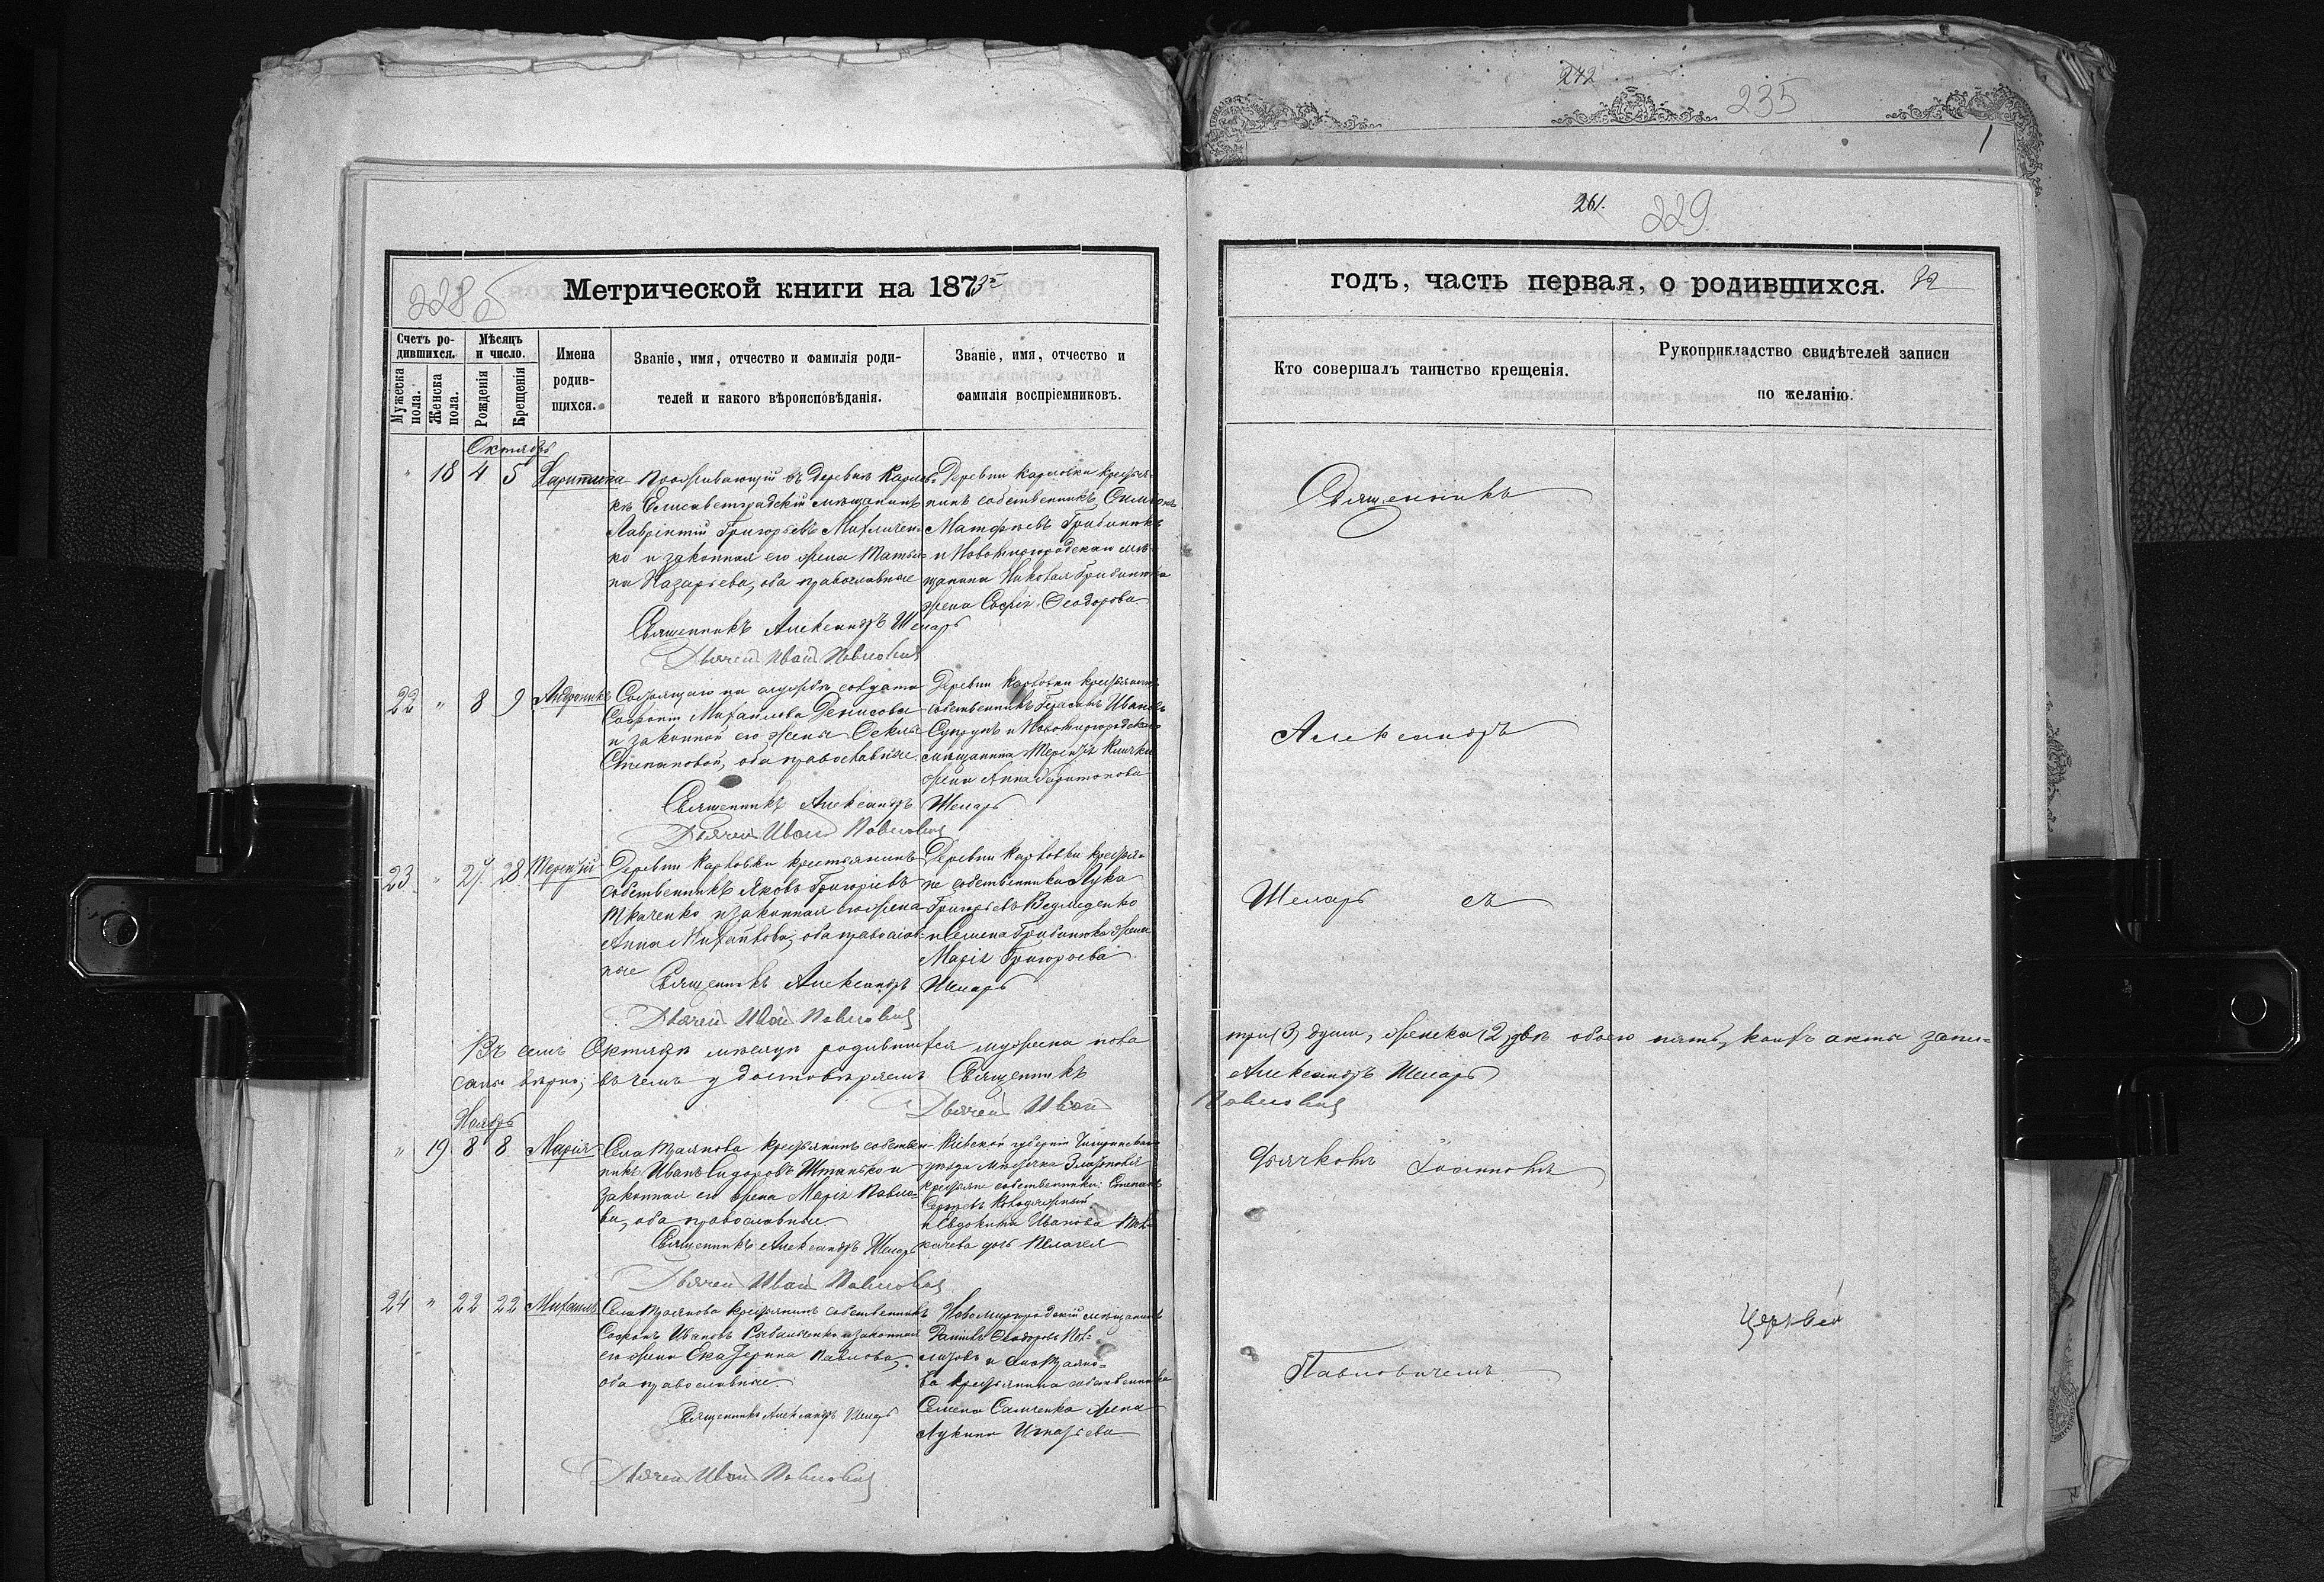 242
235
1
261.
229
228 б
Метрической книги на 1873
годъ, часть первая, о родившихся. 32
Счетъ ро-
дившихся.
Мужеска пола.
Женска пола.
Мѣсяцъ
и число.
Рожденія
Крещенія
Имена
родив-
шихся.
Званіе, имя, отчество и фамилія роди-
телей и какого вѣроисповѣданія.
Званіе, имя, отчество и
фамилія воспріемниковъ.
Кто совершалъ таинство крещенія.
Рукоприкладство свидѣтелей записи
по желанію.
Октябрь
" 18 4 5 Харитина
Проживающій въ деревнѣ Карлов-
кѣ Елисаветградскій мѣщанинъ
Лаврентій Григорьевъ
ко и законная его жена Татья-
на Назарьева, оба православные
Деревни Карловки крестья-
нинъ собственникъ Симеонъ
Матфеевъ
и Новомиргородскаго мѣ-
щанина Николая
жена Софія Ѳеодорова
Священникъ Александръ Шеларь
Дьячекъ Иванъ Павловичъ
22 " 8 9 Андроникъ
Состоящаго на службѣ солдата
Софронія Михайлова Денисова
и законной его жены Ѳеклы
Степановой, оба православные
Деревни Карловки крестьянинъ
собственникъ Герасимъ Ивановъ
Супрунъ и Новомиргородскаго
мѣщанина Терентія
жена Анна Харитонова
Священникъ Александръ Шеларь
Дьячекъ Иванъ Павловичъ
23 " 27 28 Терентій
Деревни Карловки крестьянинъ
собственникъ Яковъ Григоріевъ
Ткаченко и законная его жена
Анна Михайлова, оба православ-
ные
Деревни Карловки крестья-
не собственники Лука
Григорьевъ
и Семена жена
Марія Григорьева
Священникъ Александръ Шеларь
Дьячекъ Иванъ Павловичъ
Въ семъ Октябрѣ мѣсяцѣ родившихся мужеска пола три (3) души, женска (2) двѣ обоего пять, коихъ акты запи-
саны вѣрно, въ чемъ удостовѣряемъ Священникъ Александръ Шеларь
Дьячекъ Иванъ Павловичъ
Ноябрь
" 19 8 8 Марія
Села Тоянова крестьянинъ собствен-
никъ Иванъ Сидоровъ Штанько и
законная его жена Марія Павло-
ва, оба православные.
Кіевской губерніи Чигиринскаго
уѣзда мѣстечка Златополя
крестьяне собственники: Степанъ
и Евдокима Иванова
дочь Пелагея
Священникъ Александръ Шеларь
Дьячекъ Иванъ Павловичъ
24 " 22 22 Михаилъ
крестьянинъ собственникъ
Софронъ Ивановъ и законная
его жена Екатерина Павлова,
оба православные.
Новомиргородскій мѣщанинъ
Даніилъ Ѳеодоровъ
крестьянина собственника
Семена жена
Лукина Игнатьева
Священникъ Александръ Шеларь
Дьячекъ Иванъ Павловичъ
Священникъ
Александръ
Шеларь съ
Дьячкомъ Іоанномъ
Павловичемъ